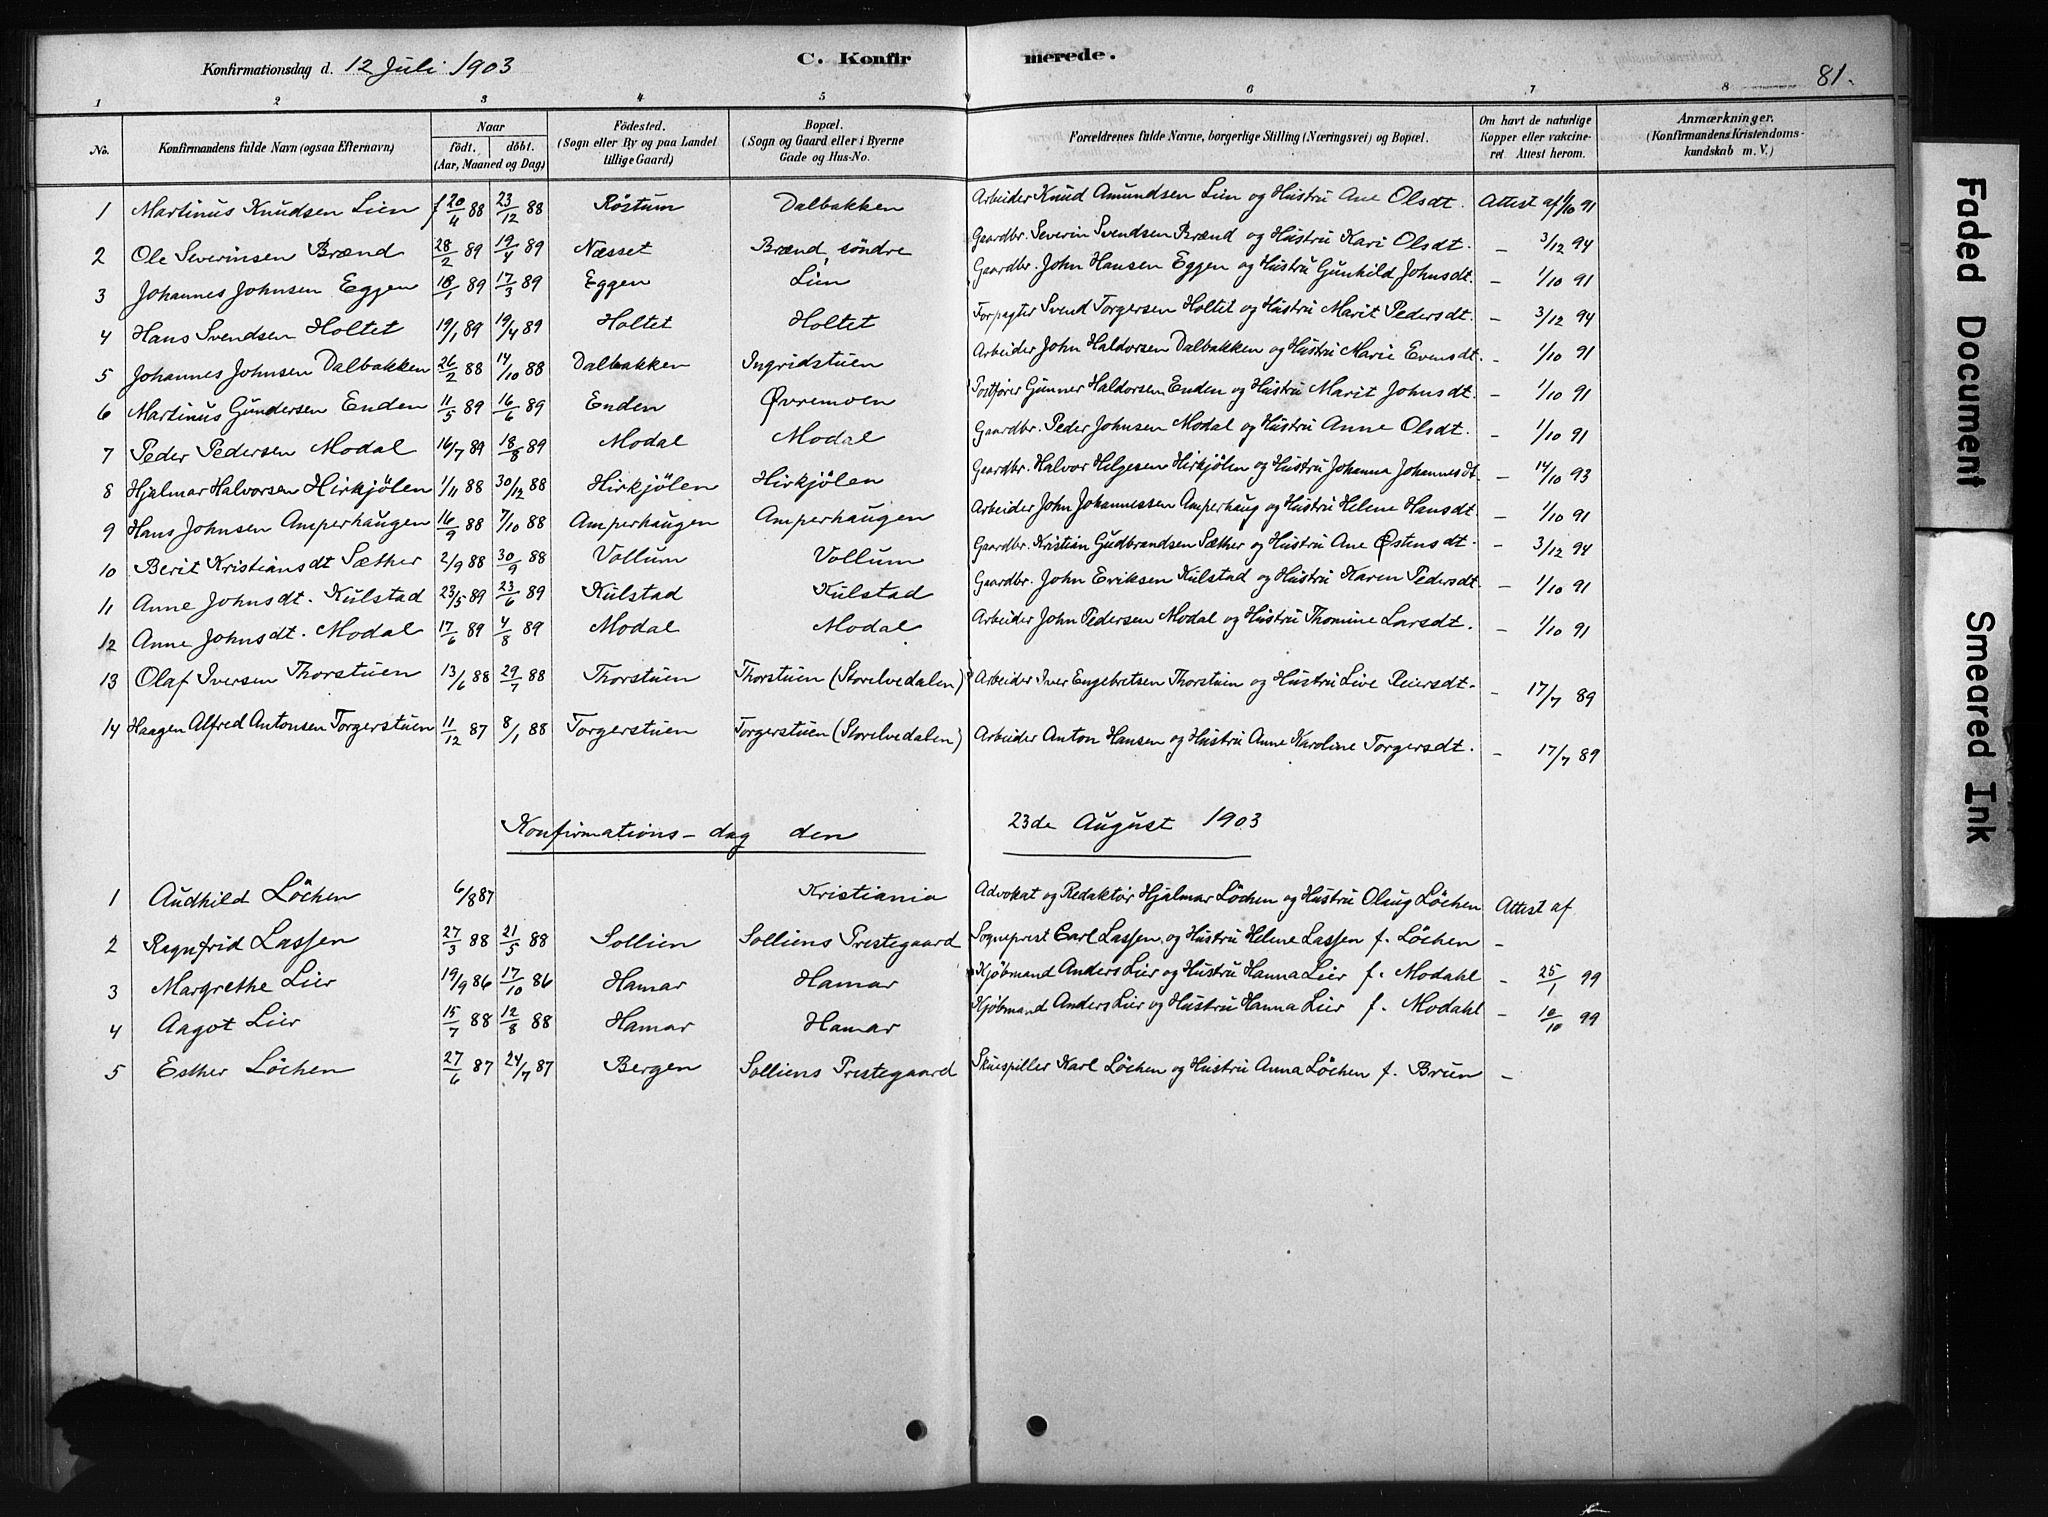 Konfirmationsdag d. 12 Juli 1903 C. Konfirmerede. 81.
1 2 3 4 5 6 7 8
No. Konfirmandens fulde Navn (ogsaa Efternavn) Naar födt. döbt. (Aar, Maaned og Dag) Födested. (Sogn eller By og paa Landet tillige Gaard) Bopæl. (Sogn og Gaard eller i Byerne Gade og Hus-No. Forældrenes fulde Navne, borgerlige Stilling (Næringsvei) og Bopæl. Om havt de naturlige Kopper eller vakcineret Attest herom. Anmærkninger. (Konfirmandens Kristendomskundskab m. V.)
1 Martinus Knudsen Lien f 20/4 88 23/12 88 Röstum Dalbakken Arbeider Knud Amundsen Lien og Hustru Ane Olsdt. Attest af 1/10 91
2 Ole Severinsen Brænd 28/2 89 19/4 89 Næsset Brænd, söndre Gaardbr. Severin Svendsen Brænd og Hustru Kari Olsdt. - 3/12 94
3 Johannes Johnsen Eggen 18/1 89 17/3 89 Eggen Lien Gaardbr. John Hansen Eggen og Hustru Gunhild Johnsdt. - 1/10 91
4 Hans Svendsen Holtet 19/1 89 19/4 89 Holtet Holtet Forpagter Svend Torgersen Holtet og Hustru Marit Pedersdt. - 3/12 94
5 Johannes Johnsen Dalbakken 26/2 88 14/10 88 Dalbakken Ingridstuen Arbeider John Haldorsen Dalbakken og Hustru Marie Evensdt. - 1/10 91
6 Martinus Gundersen Enden 11/5 89 16/6 89 Enden Øvremoen Postfører Gunner Haldorsen Enden og Hustru Marit Johnsdt. - 1/10 91
7 Peder Pedersen Modal 16/7 89 18/8 89 Modal Modal Gaardbr. Peder Johnsen Modal og Hustru Anne Olsdt. - 1/10 91
8 Hjalmar Halvorsen Hirkjölen 1/11 88 30/12 88 Hirkjölen Hirkjölen Gaardbr. Halvor Helgesen Hirkjölen og Hustru Johanna Johannesdt. - 14/10 93
9 Hans Johnsen Amperhaugen 16/9 88 7/10 88 Amperhaugen Amperhaugen Arbeider John Johannessen Amperhaug og Hustru Helene Hansdt. - 1/10 91
10 Berit Kristiansdt Sæther 2/9 88 30/9 88 Vollum Vollum Gaardbr. Kristian Gudbrandsen Sæther og Hustru Ane Østensdt. - 3/12 94
11 Anne Johnsdt. Kulstad 23/5 89 23/6 89 Kulstad Kulstad Gaardbr. John Eriksen Kulstad og Hustru Karen Pedersdt. - 1/10 91
12 Anne Johnsdt. Modal 17/6 89 4/8 89 Modal Modal Arbeider John Pedersen Modal og Hustru Thomine Larsdt. - 1/10 91
13 Olaf Iversen Thorstuen 13/6 88 29/7 88 Thorstuen Thorstuen (Storelvedalen) Arbeider Iver Engebretsen Thorstuen og Hustru Live Peiersdt. - 17/7 89
14 Haagen Alfred Antonsen Torgerstuen 11/12 87 8/1 88 Torgerstuen Torgerstuen (Storelvedalen) Arbeider Anton Hansen og Hustru Anne Karoline Torgersdt. - 17/7 89
Konfirmations-dag den 23de August 1903
1 Audhild Löchen 6/8 87 Kristiania Advokat og Redaktör Hjalmar Löchen og Hustru Olaug Löchen Attest af
2 Regnfrid Lassen 27/3 88 21/5 88 Sollien Solliens Prestegaard Sogneprest Carl Lassen og Hustru Helene Lassen f. Löchen -
3 Margrethe Lier 19/9 86 17/10 86 Hamar Hamar Kjöbmand Anders Lier og Hustru Hanna Lier f. Modahl - 25/1 99
4 Aagot Lier 15/7 88 12/8 88 Hamar Hamar Kjöbmand Anders Lier og Hustru Hanna Lier f. Modahl - 10/10 99
5 Esther Löchen 27/6 87 24/7 87 Bergen Solliens Prestegaard Skuespiller Karl Löchen og Hustru Anna Löchen f. Brun -
Faded Document
Smeared Ink